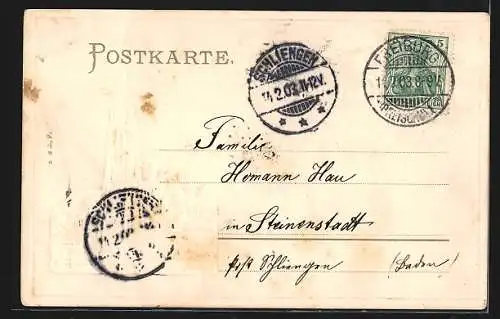 POSTKARTE.
SCHLIENGEN
14.2.03.11-12V.
FREIBURG
5
(BREISGAU)
Familie
Homann Hau
in Steinenstadt
Post Schliengen (Baden)